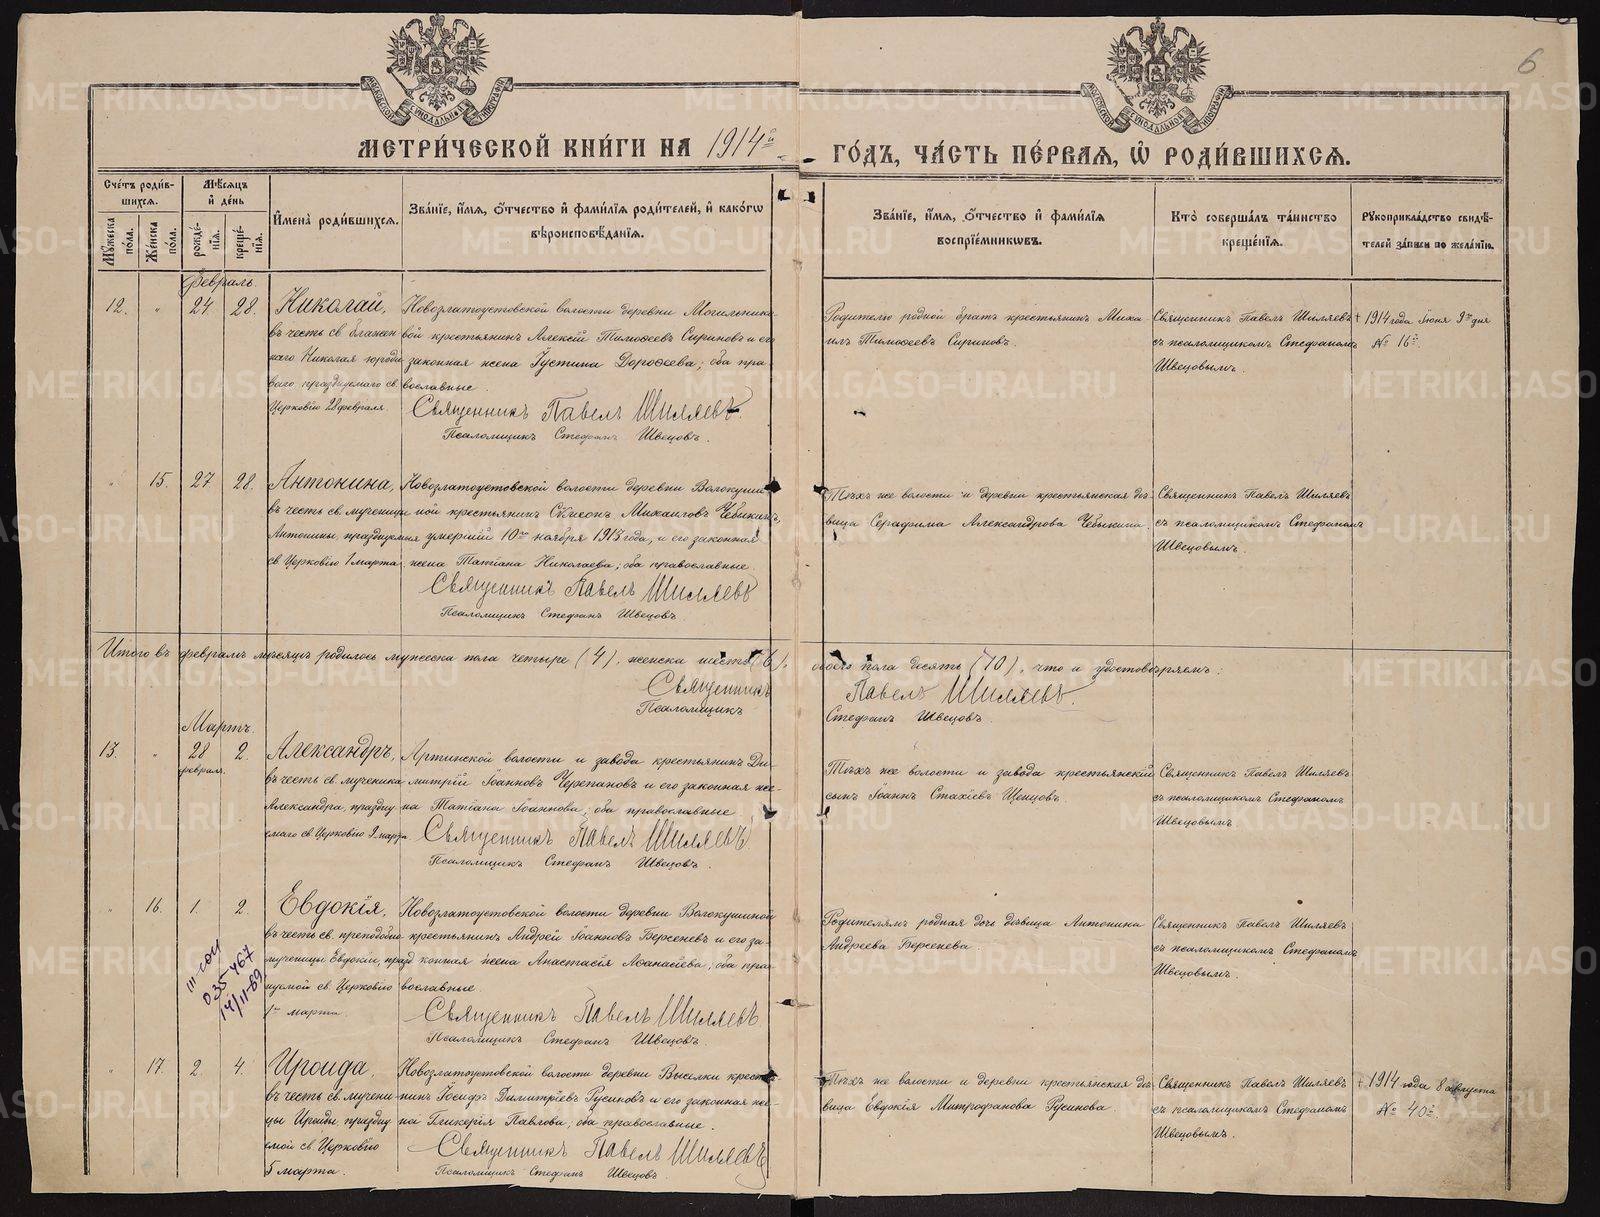 6
МЕТРИ́ЧЕСКОЙ КНИ́ГИ НА 1914й ГО́ДЪ, ЧА́СТЬ ПЕ́РВАЯ, Ѡ҆ РОДИ́ВШИХСЯ.
Сче́тъ роди́в-
шихся.
Мꙋ́жеска по́ла.
Же́нска по́ла.
Мѣ́сяцъ
и҆ де́нь
рожде́-
нїя.
креще́-
нїя.
И҆мена̀ роди́вшихся.
Зва́нїе, и҆́мя, ѻ҆́тчество и҆ фами́лїя роди́телей, и҆ како́гѡ
вѣроисповѣ́данїя.
Зва́нїе, и҆́мя, ѻ҆́тчество и҆ фами́лїя
воспрїе́мникѡвъ.
Кто̀ соверша́лъ та́инство
креще́нїя.
Рꙋкоприкла́дство свидѣ́-
телей за́писи по жела́нїю.
Февраль.
12. " 24. 28.
Николай,
въ честь св. блажен
наго Николая юроди
ваго празднуемаго св.
Церковію 28 февраля.
Новозлатоустовской волости деревни Могильнико
вой крестьянинъ Алексій Тимоѳеевъ Сириновъ и его
законная жена Іустина Дороѳеева; оба пра
вославные.
Священникъ Павелъ Шиляевъ.
Псаломщикъ Стефанъ Швецовъ.
Родителю родной братъ крестьянинъ Миха
илъ Тимоѳеевъ Сириновъ.
Священникъ Павелъ Шиляевъ
съ псаломщикомъ Стефаномъ
Швецовымъ.
+ 1914 года Іюня 9го дня
№ 16й.
" 15. 27. 28.
Антонина,
въ честь св. мученицы
Антонины, празднуемыя
св. Церковію 1 марта.
Новозлатоустовской волости деревни Волокуши
ной крестьянинъ Сѵмеонъ Михаиловъ Чебыкинъ,
умершій 10го ноября 1913 года, и его законная
жена Татіана Николаева; оба православные.
Священникъ Павелъ Шиляевъ
Псаломщикъ Стефанъ Швецовъ.
Тѣхъ же волости и деревни крестьянская дѣ
вица Серафима Александрова Чебыкина.
Священникъ Павелъ Шиляевъ
съ псаломщикомъ Стефаномъ
Швецовымъ.
Итого въ февралѣ мѣсяцѣ родилось мужеска пола четыре (4), женска шесть (6), обоего пола десять (10), что и удостовѣряемъ:
Священникъ Павелъ Шиляевъ.
Псаломщикъ Стефанъ Швецовъ.
Мартъ.
13. " 28 2.
февраля.
Александръ,
въ честь св. мученика
Александра, праздну
емаго св. Церковію 9 марта
Артинской волости и завода крестьянинъ Ди
митрій Іоанновъ Черепановъ и его законная же
на Татіана Іоаннова; оба православные.
Священникъ Павелъ Шиляевъ.
Псаломщикъ Стефанъ Швецовъ.
Тѣхъ же волости и завода крестьянскій
сынъ Іоаннъ Стахіевъ Щепцовъ.
Священникъ Павелъ Шиляевъ
съ псаломщикомъ Стефаномъ
Швецовымъ.
" 16. 1. 2.
Евдокія,
въ честь св. преподобно
мученицы Евдокіи, празд
нуемой св. Церковію
1го марта.
Новозлатоустовской волости деревни Волокушиной
крестьянинъ Андрей Іоанновъ Берсеневъ и его за
конная жена Анастасія Аѳанасіева; оба пра
вославные.
Священникъ Павелъ Шиляевъ
Псаломщикъ Стефанъ Швецовъ.
Родителямъ родная дочь дѣвица Антонина
Андреева Берсенева.
Священникъ Павелъ Шиляевъ
съ псаломщикомъ Стефаномъ
Швецовымъ.
035467
14/II-89
" 17. 2. 4.
Ироида,
въ честь св. мучени
цы Ираиды, праздну
емой св. Церковію
5 марта.
Новозлатоустовской волости деревни Выселки кресть
нинъ Іосифъ Димитріевъ Русиновъ и его законная же
на Гликерія Павлова; оба православные.
Священникъ Павелъ Шиляевъ
Псаломщикъ Стефанъ Швецовъ.
Тѣхъ же волости и деревни крестьянская дѣ
вица Евдокія Митрофанова Русинова.
Священникъ Павелъ Шиляевъ
съ псаломщикомъ Стефаномъ
Швецовымъ.
+ 1914 года 8 августа
№ 40й.